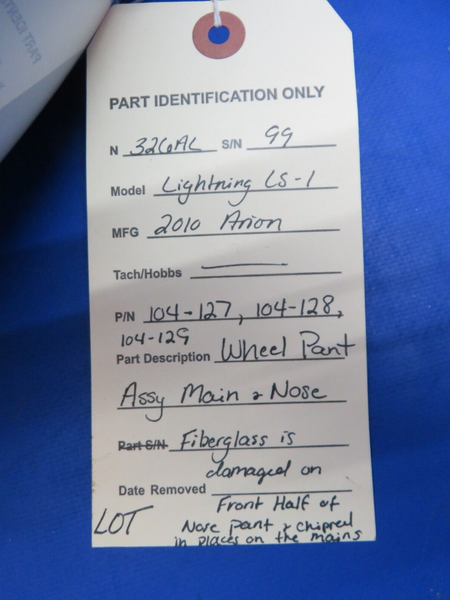 PART IDENTIFICATION ONLY
N 326AL S/N 99
Model Lightning LS-1
MFG 2010 Arion
Tach/Hobbs
P/N 104-127, 104-128,
104-129
Part Description Wheel Pant
Assy Main & Nose
Part S/N Fiberglass is
damaged on
Date Removed Front Half of
LOT Nose pant & chipped
in places on the mains
PART IDENTI